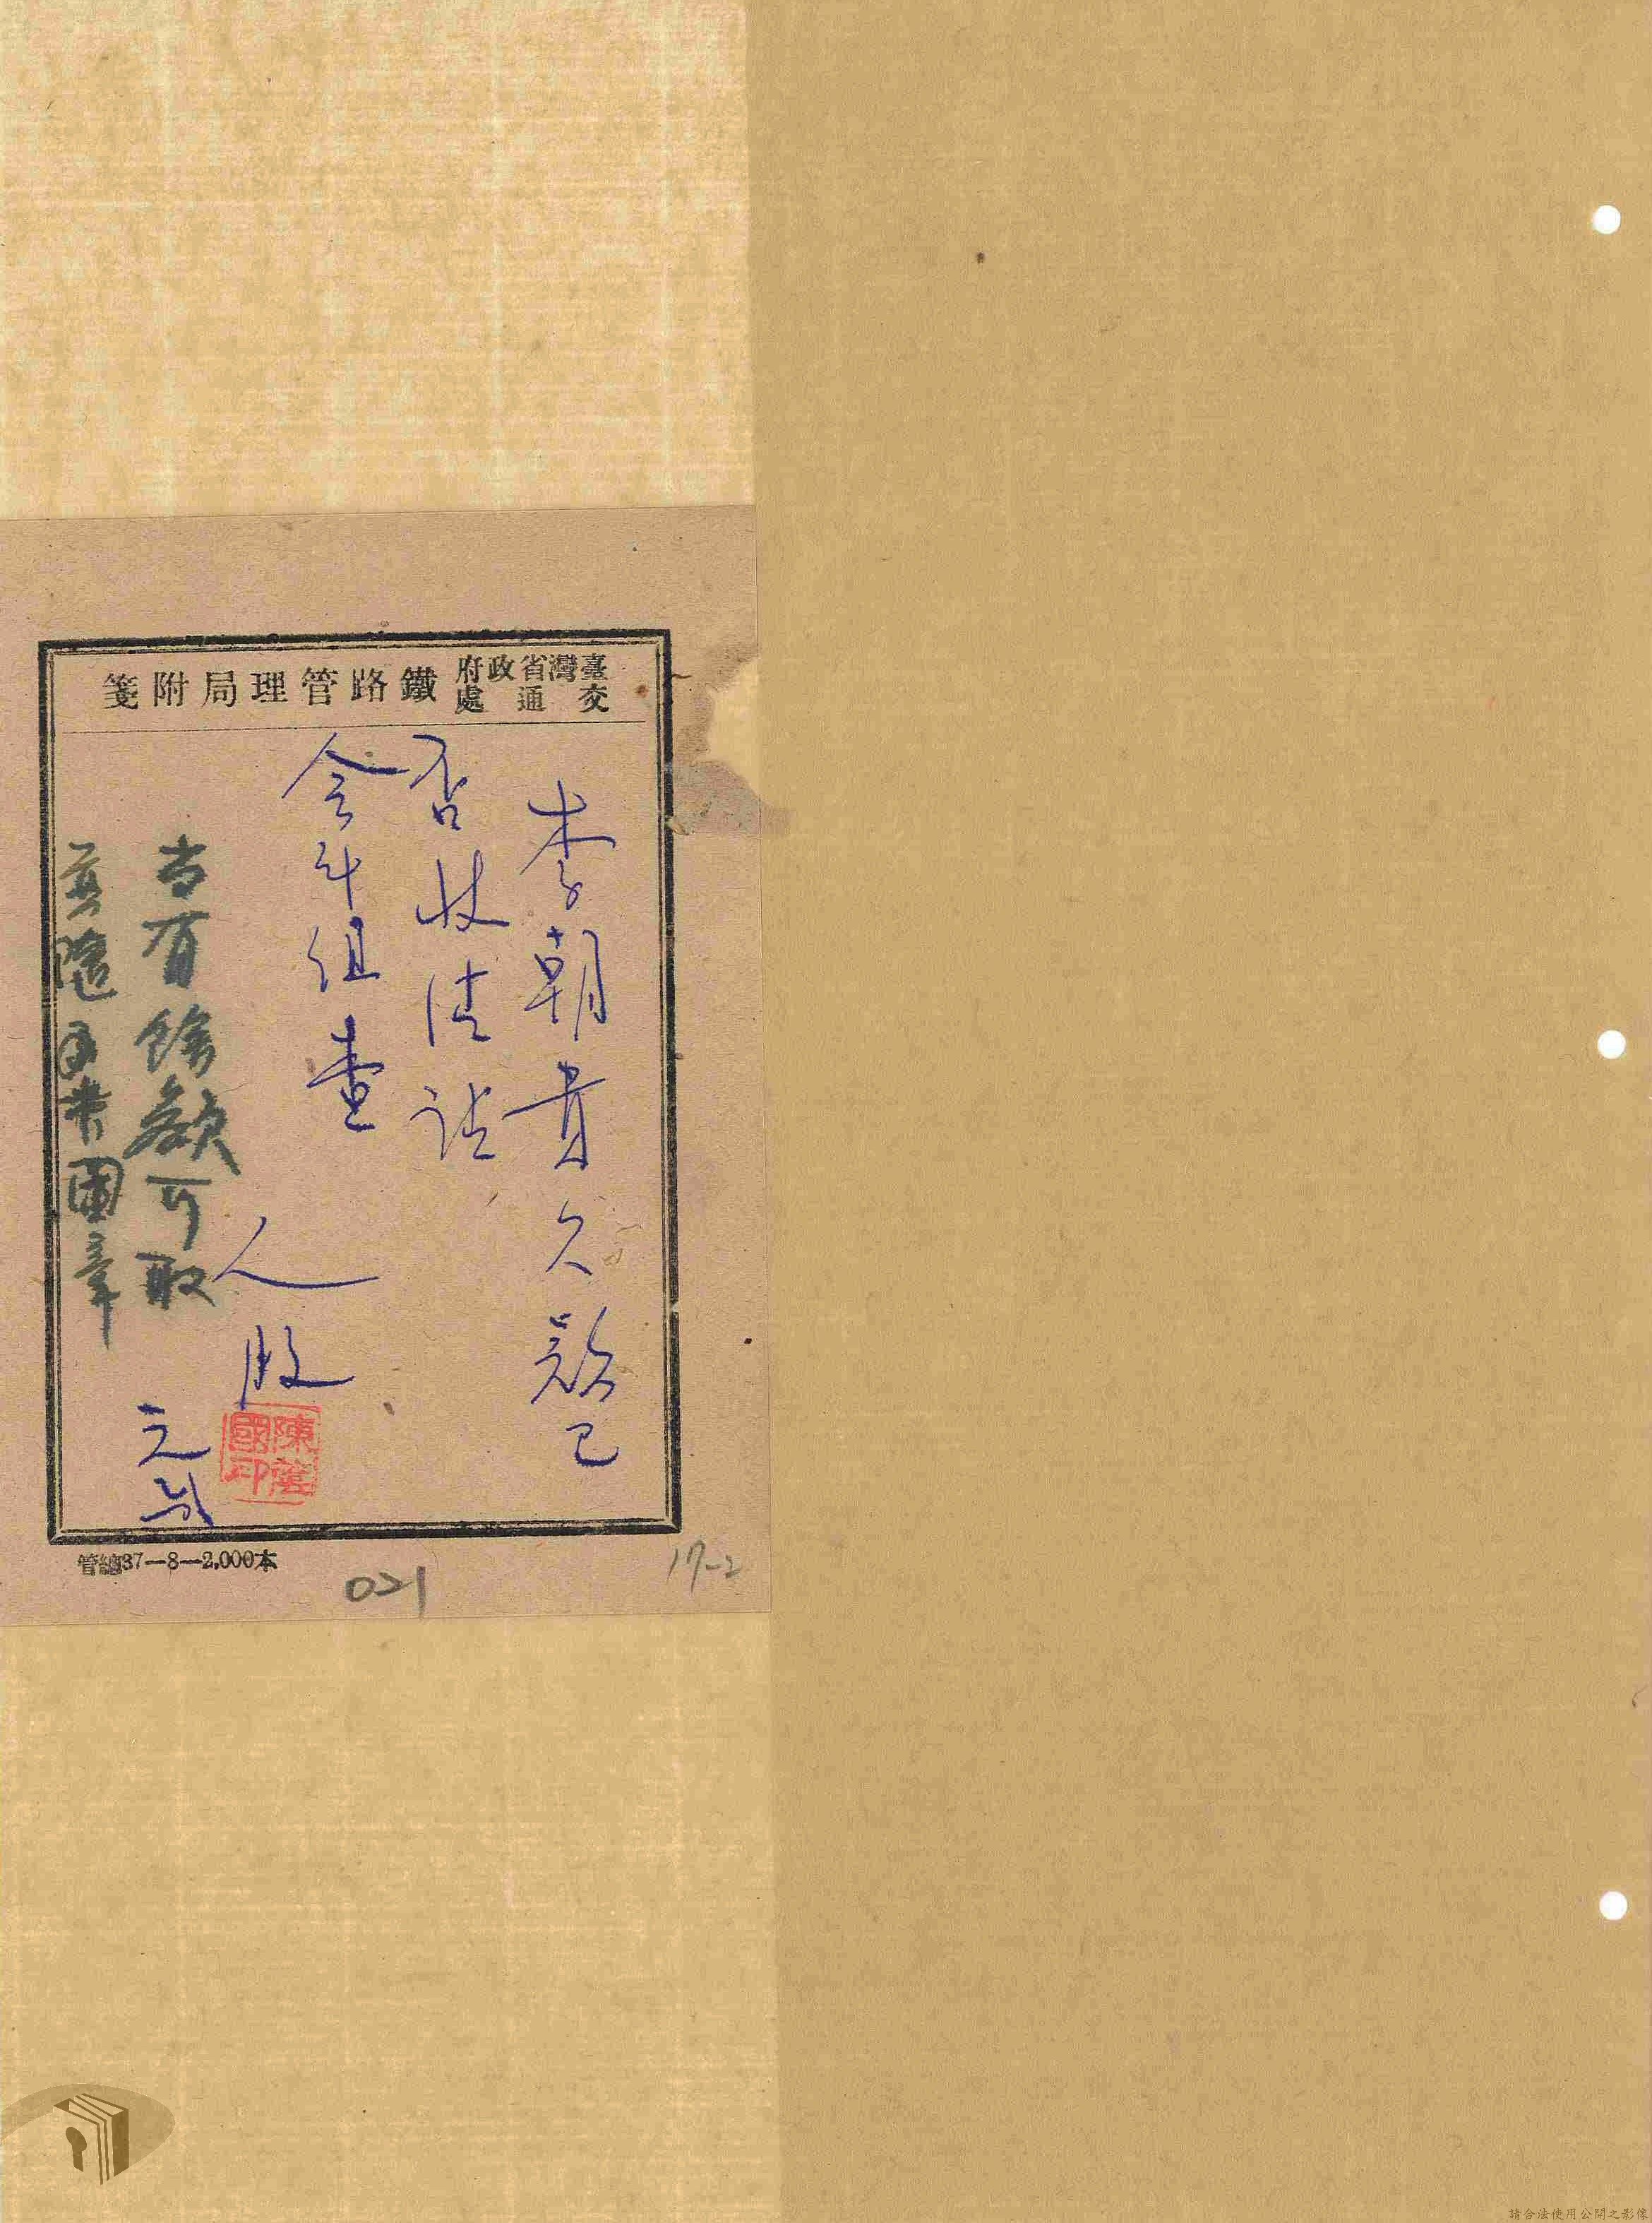 臺灣省政府交通處鐵路管理局附箋
李朝貴欠款已
否收清請
會计組查
人股
陳
國印
尚有餘額可取
並隨身帶圖章
元
管總37—8—2,000本
021
17-2
請合法使用公開之影像